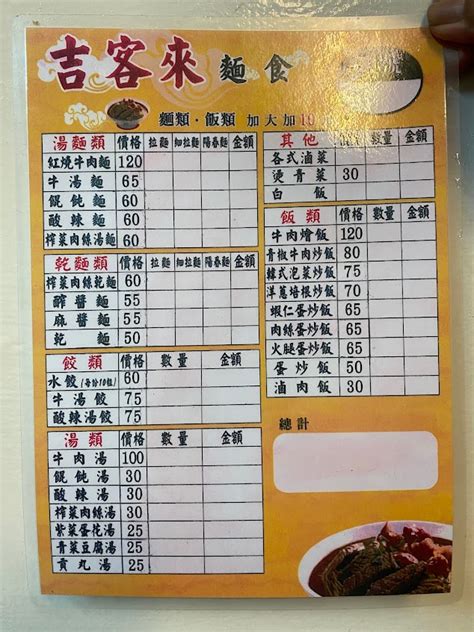 吉客來 麵食
麵類・飯類 加大加10
湯麵類 價格 拉麵 細拉麵 陽春麵 金額
紅燒牛肉麵 120
牛湯麵 65
餛飩麵 60
酸辣麵 60
榨菜肉絲湯麵 60
乾麵類 價格 拉麵 細拉麵 陽春麵 金額
榨菜肉絲乾麵 60
醡醬麵 55
麻醬麵 50
乾麵 50
餃類 價格 數量 金額
水餃(每份10粒) 60
牛湯餃 75
酸辣湯餃 75
湯類 價格 數量 金額
牛肉湯 100
餛飩湯 30
酸辣湯 30
榨菜肉絲湯 30
紫菜蛋花湯 25
青菜豆腐湯 25
貢丸湯 25
其他 價格 數量 金額
各式滷菜
燙青菜 30
白飯
飯類 價格 數量 金額
牛肉燴飯 120
青椒牛肉炒飯 80
韓式泡菜炒飯 75
洋蔥培根炒飯 70
蝦仁蛋炒飯 65
肉絲蛋炒飯 65
火腿蛋炒飯 65
蛋炒飯 50
滷肉飯 30
總計